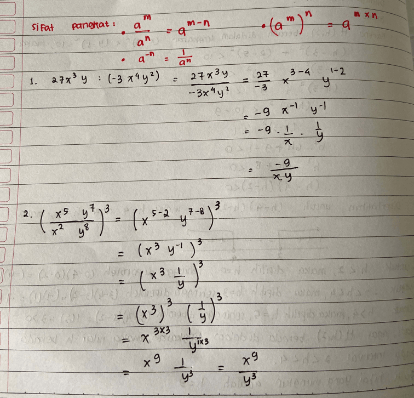 Sifat Pangkat : • a^m / a^n = a^(m-n) • (a^m)^n = a^(m×n)
• a^-n = 1/a^n
1. 27x³y : (-3 x⁴y²) = 27x³y / -3x⁴y² = 27/-3 x^(3-4) y^(1-2)
= -9 x^-1 y^-1
= -9 · 1/x · 1/y
= -9 / xy
2. (x⁵ y⁷ / x² y⁸)³ = (x^(5-2) y^(7-8))³
= (x³ y^-1)³
= (x³ 1/y)³
= (x³)³ (1/y)³
= x^(3×3) 1/y^(1×3)
= x⁹ 1/y³ = x⁹/y³